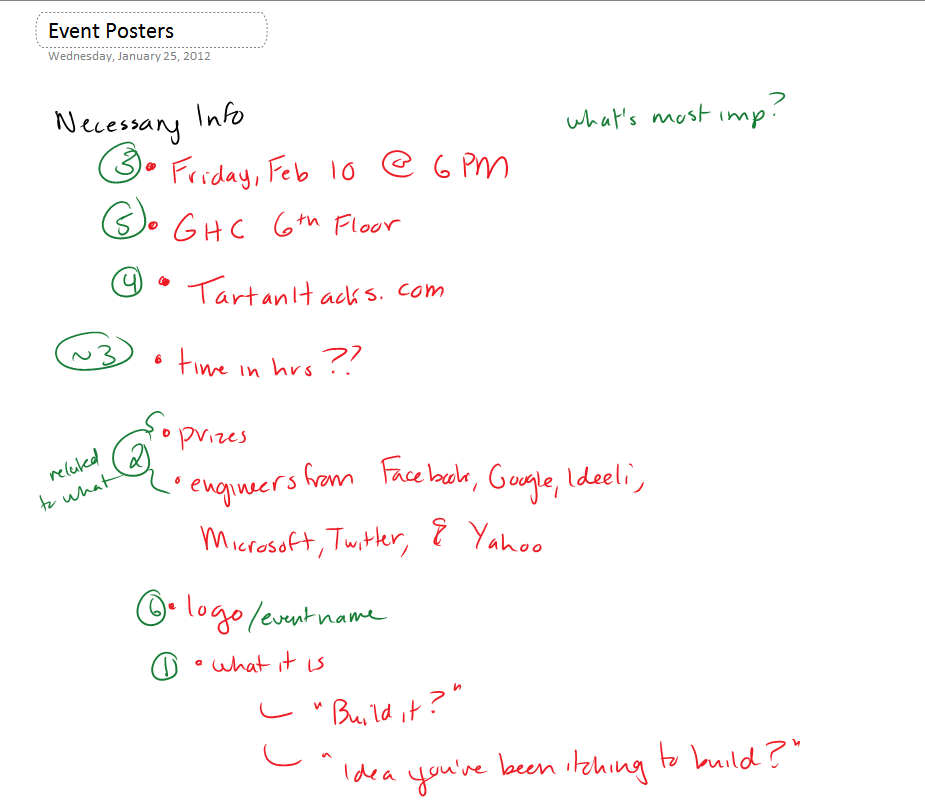 Event Posters
Wednesday, January 25, 2012
Necessary Info
what's most imp?
3 • Friday, Feb 10 @ 6 PM
5 • GHC 6th Floor
4 • TartanHacks.com
~3 • time in hrs ??
• prizes
related to what 2
• engineers from Facebook, Google, Ideeli,
Microsoft, Twitter, & Yahoo
6 • logo/event name
1 • what it is
"Build it?"
"Idea you've been itching to build?"